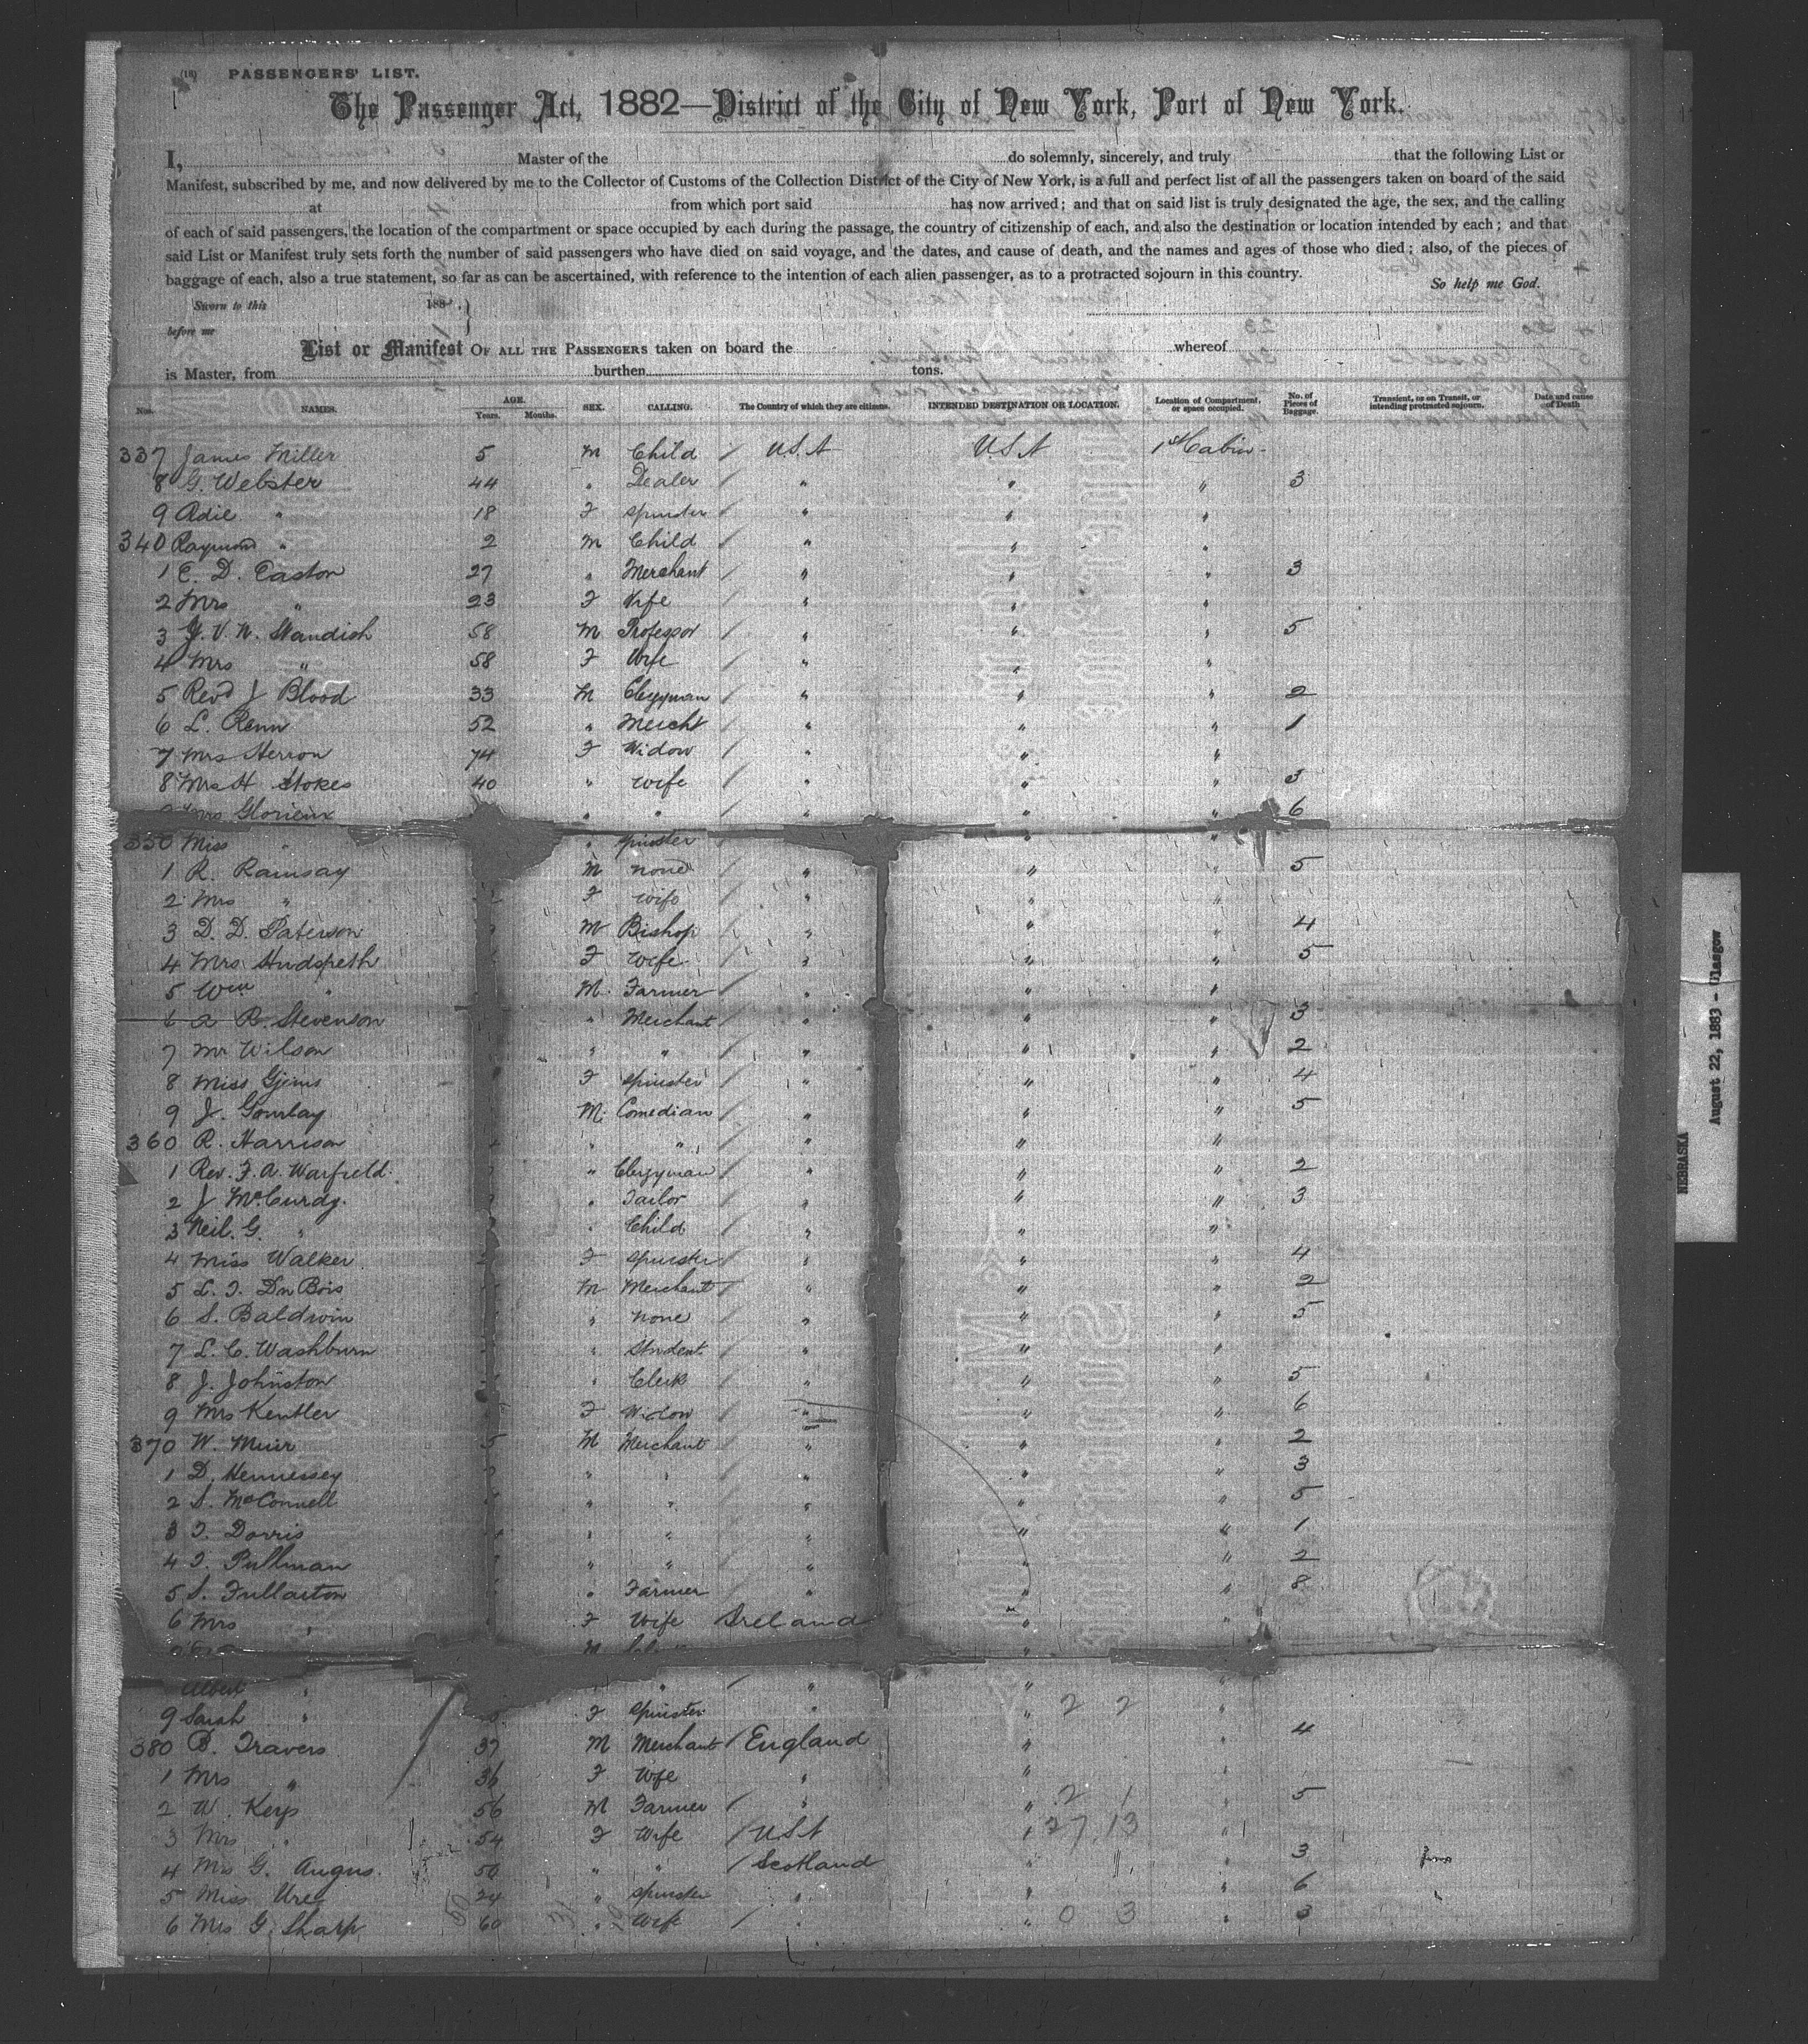 (18) PASSENGERS' LIST.
The Passenger Act, 1882—District of the City of New York, Port of New York.
I, Master of the do solemnly, sincerely, and truly that the following List or
Manifest, subscribed by me, and now delivered by me to the Collector of Customs of the Collection District of the City of New York, is a full and perfect list of all the passengers taken on board of the said
at from which port said has now arrived; and that on said list is truly designated the age, the sex, and the calling
of each of said passengers, the location of the compartment or space occupied by each during the passage, the country of citizenship of each, and also the destination or location intended by each; and that
said List or Manifest truly sets forth the number of said passengers who have died on said voyage, and the dates, and cause of death, and the names and ages of those who died; also, of the pieces of
baggage of each, also a true statement, so far as can be ascertained, with reference to the intention of each alien passenger, as to a protracted sojourn in this country.
So help me God.
Sworn to this 188 .
before me
List or Manifest OF ALL THE PASSENGERS taken on board the whereof
is Master, from burthen tons.
Nos. NAMES. AGE. Years. Months. SEX. CALLING. The Country of which they are citizens. INTENDED DESTINATION OR LOCATION. Location of Compartment, or space occupied. No. of Pieces of Baggage. Transient, or on Transit, or intending protracted sojourn. Date and cause of Death
337 James Miller 5 M Child / U.S.A U.S.A 1st Cabin
8 G. Webster 44 " Dealer / " " " 3
9 Adie " 18 F Spinster / " " "
340 Raymond " 2 M Child / " " "
1 C. D. Easton 27 " Merchant / " " " 3
2 Mrs " 23 F Wife / " " "
3 J. V. N. Standish 58 M Professor / " " " 5
4 Mrs " 58 F Wife / " " "
5 Revd J Blood 33 M Clergyman / " " " 2
6 L. Renn 52 " Mercht / " " " 1
7 Mrs Herron 74 F Widow / " " "
8 Mrs H Stokes 40 " Wife / " " " 3
Mrs Glorieux " " / " " " 6
350 Miss " " Spinster / " "
1 R. Ramsay M None / " " " 5
2 Mrs " F Wife / " " "
3 D. D. Paterson M Bishop / " " " 4
4 Mrs Hudspeth F Wife / " " " 5
5 Wm " M. Farmer / " " "
6 A R. Stevenson " Merchant / " " " 3
7 Mr Wilson " " / " " " 2
8 Miss Gjems F Spinster / " " " 4
9 J. Gourlay M. Comedian / " " " 5
360 R. Harrison " " / " " "
1 Rev. F. A. Warfield " Clergyman / " " " 2
2 J McCurdy. " Tailor / " " " 3
3 Neil. G. " " Child / " " "
4 Miss Walker F Spinster / " " " 4
5 L. F. DuBois M Merchant / " " " 2
6 S. Baldwin " None / " " " 5
7 L. C. Washburn " Student / " " "
8 J. Johnston " Clerk / " " " 5
9 Mrs Kentler F Widow / " " " 6
370 W. Muir 5 M Merchant / " " " 2
1 D. Hennessey " " / " " " 3
2 S. McConnell " " / " " " 5
3 T. Dorris " " / " " " 1
4 T. Pullman " " / " " " 2
5 S. Fullarton " Farmer / " " " 8
6 Mrs " F Wife Ireland " "
M "
Albert " " " / " " "
9 Sarah " F Spinster " " 2 2 "
380 B. Travers 37 M Merchant / England " " 4
1 Mrs " 36 F Wife " " "
2 W. Keys 56 M Farmer / " " 2 1 " 5
3 Mrs " 54 F Wife / USA " 27.13 "
4 Mrs G. Angus. 50 " " / Scotland " " 3
5 Miss Ure 24 " Spinster " " " 6
6 Mrs G. Sharp 60 " Wife / " " 0 3 " 3
NEBRASKA
August 22, 1883 - Glasgow